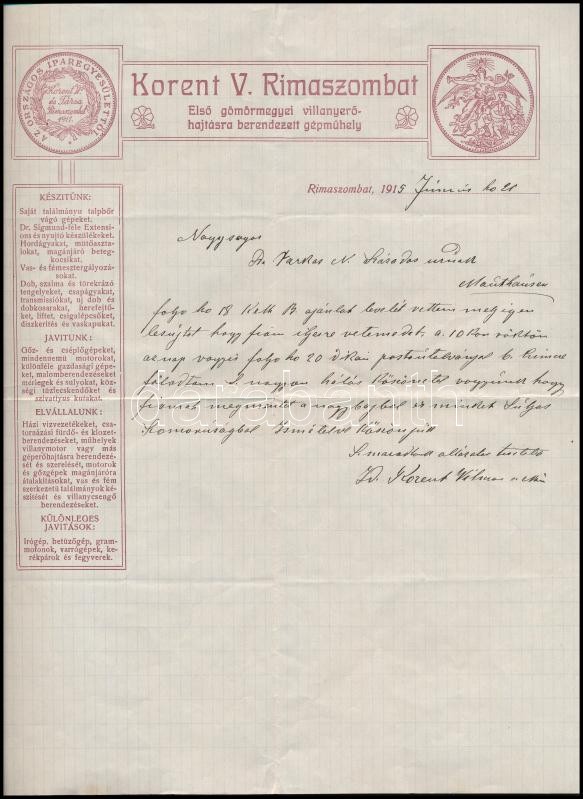 AZ ORSZÁGOS IPAREGYESÜLETTŐL
Korent V.
és Társa
Rimaszombat
1911.
Korent V. Rimaszombat
Első gömörmegyei villanyerő-
hajtásra berendezett gépműhely
Rimaszombat, 1915 Június ho 21
KÉSZITÜNK:
Saját találmányu talpbőr
vágó gépeket.
Dr. Sigmund-féle Extensi-
ons és nyujtó készülékeket.
Hordágyakat, műtőaszta-
lokat, magánjáró beteg-
kocsikat.
Vas- és fémesztergályozá-
sokat.
Dob, szalma és törekrázó
tengelyeket, csapágyakat,
transmissiókat, uj dob és
dobkosarakat, herefejtő-
ket, liftet, csigalépcsőket,
diszkerités és vaskapukat.
JAVITUNK:
Gőz- és cséplőgépeket,
mindennemü motorokat,
különféle gazdasági gépe-
ket, malomberendezéseket
mérlegek és sulyokat, köz-
ségi tüzfecskendőket és
szivattyus kutakat.
ELVÁLLALUNK:
Házi vizvezetékeket, csa-
tornázási fürdő- és klozet-
berendezéseket, műhelyek
villanymotor vagy más
géperőhajtásra berendezé-
sét és szerelését, motorok
és gőzgépek magánjáróra
átalakitásokat, vas és fém
szerkezetü találmányok ké-
szitését és villanycsengő
berendezéseket.
KÜLÖNLEGES
JAVITÁSOK:
Irógép, betüzőgép, gram-
mofonok, varrógépek, ke-
rékpárok és fegyverek.
Nagyságos
Dr. Farkas N. Százados urnak
Mauthausen
folyo ho 18 B ajánlat levelét vettem
hogy fiam a 10 Kor.
aznap vagyis folyo ho 20 dikán postautalványal
nagyon hálás vagyunk hogy
fiamat a nagy bajbol és
Köszönjük
maradtunk
Korent Vilmos
darabanth